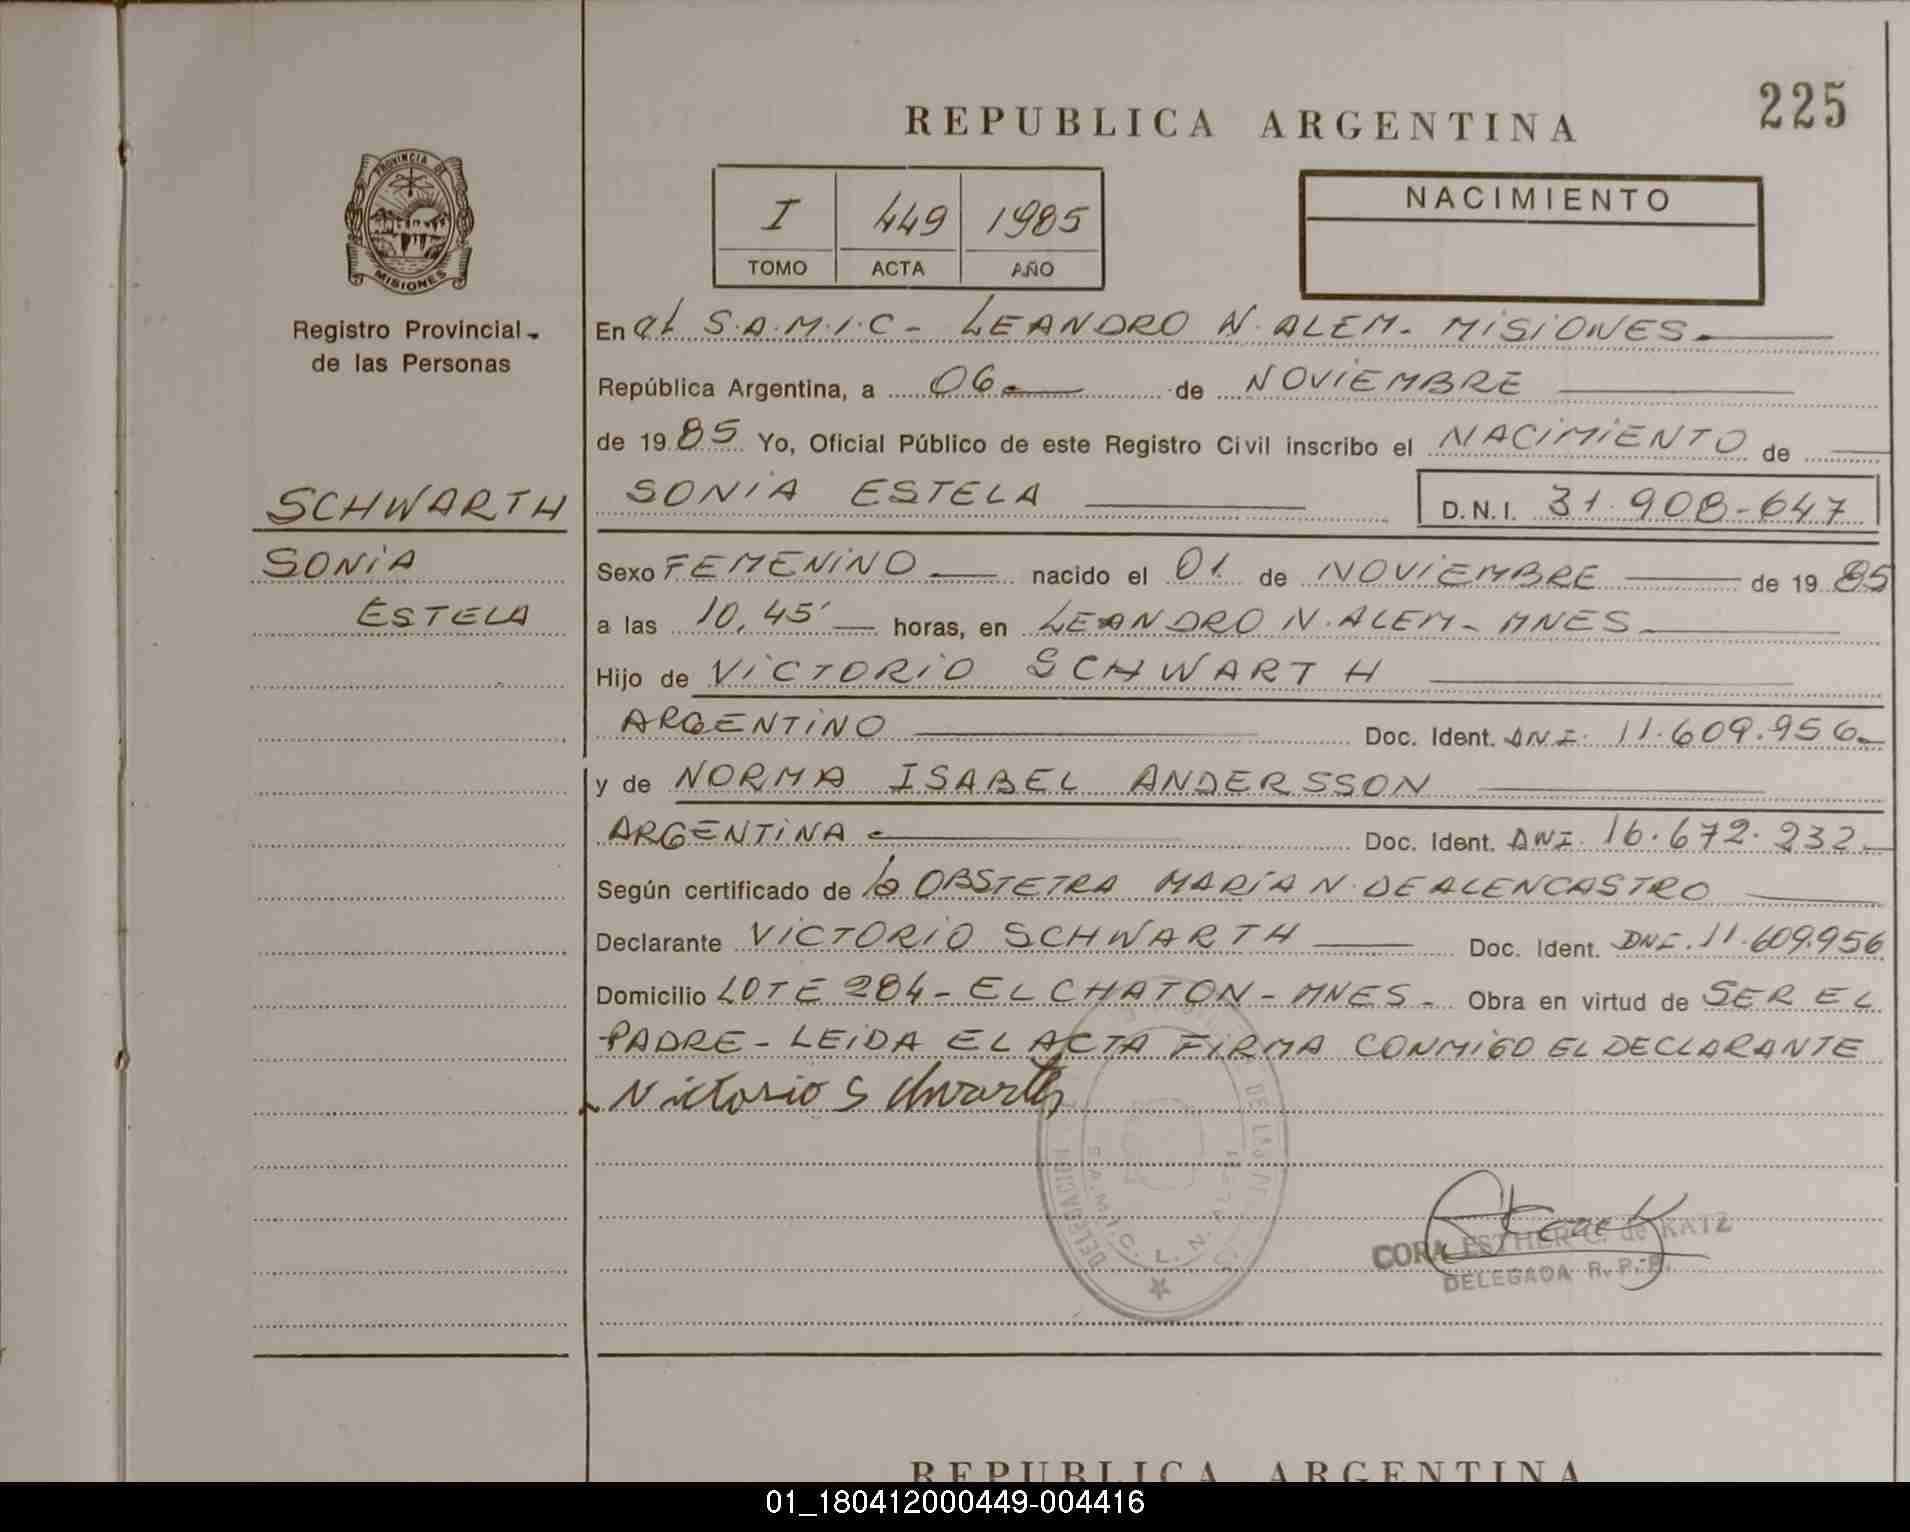 225
REPUBLICA ARGENTINA
PROVINCIA DE
MISIONES
Registro Provincial
de las Personas
I 449 1985
TOMO ACTA AÑO
NACIMIENTO
En el S.A.M.I.C - LEANDRO N. ALEM - MISIONES
República Argentina, a 06 de NOVIEMBRE
de 1985 Yo, Oficial Público de este Registro Civil inscribo el NACIMIENTO de
SCHWARTH
SONIA ESTELA D.N.I. 31.908-647
SONIA
ESTELA
Sexo FEMENINO nacido el 01 de NOVIEMBRE de 1985
a las 10,45' horas, en LEANDRO N. ALEM - MNES
Hijo de VICTORIO SCHWARTH
ARGENTINO Doc. Ident. DNI. 11.609.956
y de NORMA ISABEL ANDERSSON
ARGENTINA Doc. Ident. DNI. 16.672.232
Según certificado de la OBSTETRA MARIA N. DE ALENCASTRO
Declarante VICTORIO SCHWARTH Doc. Ident. DNI. 11.609.956
Domicilio LOTE 284 - EL CHATON - MNES - Obra en virtud de SER EL
PADRE - LEIDA EL ACTA FIRMA CONMIGO EL DECLARANTE
Victorio Schwarth
DELEGACION
S.A.M.I.C. L. N.
CORA ESTHER C. de KATZ
DELEGADA R. P. P.
REPUBLICA ARGENTINA
01_180412000449-004416